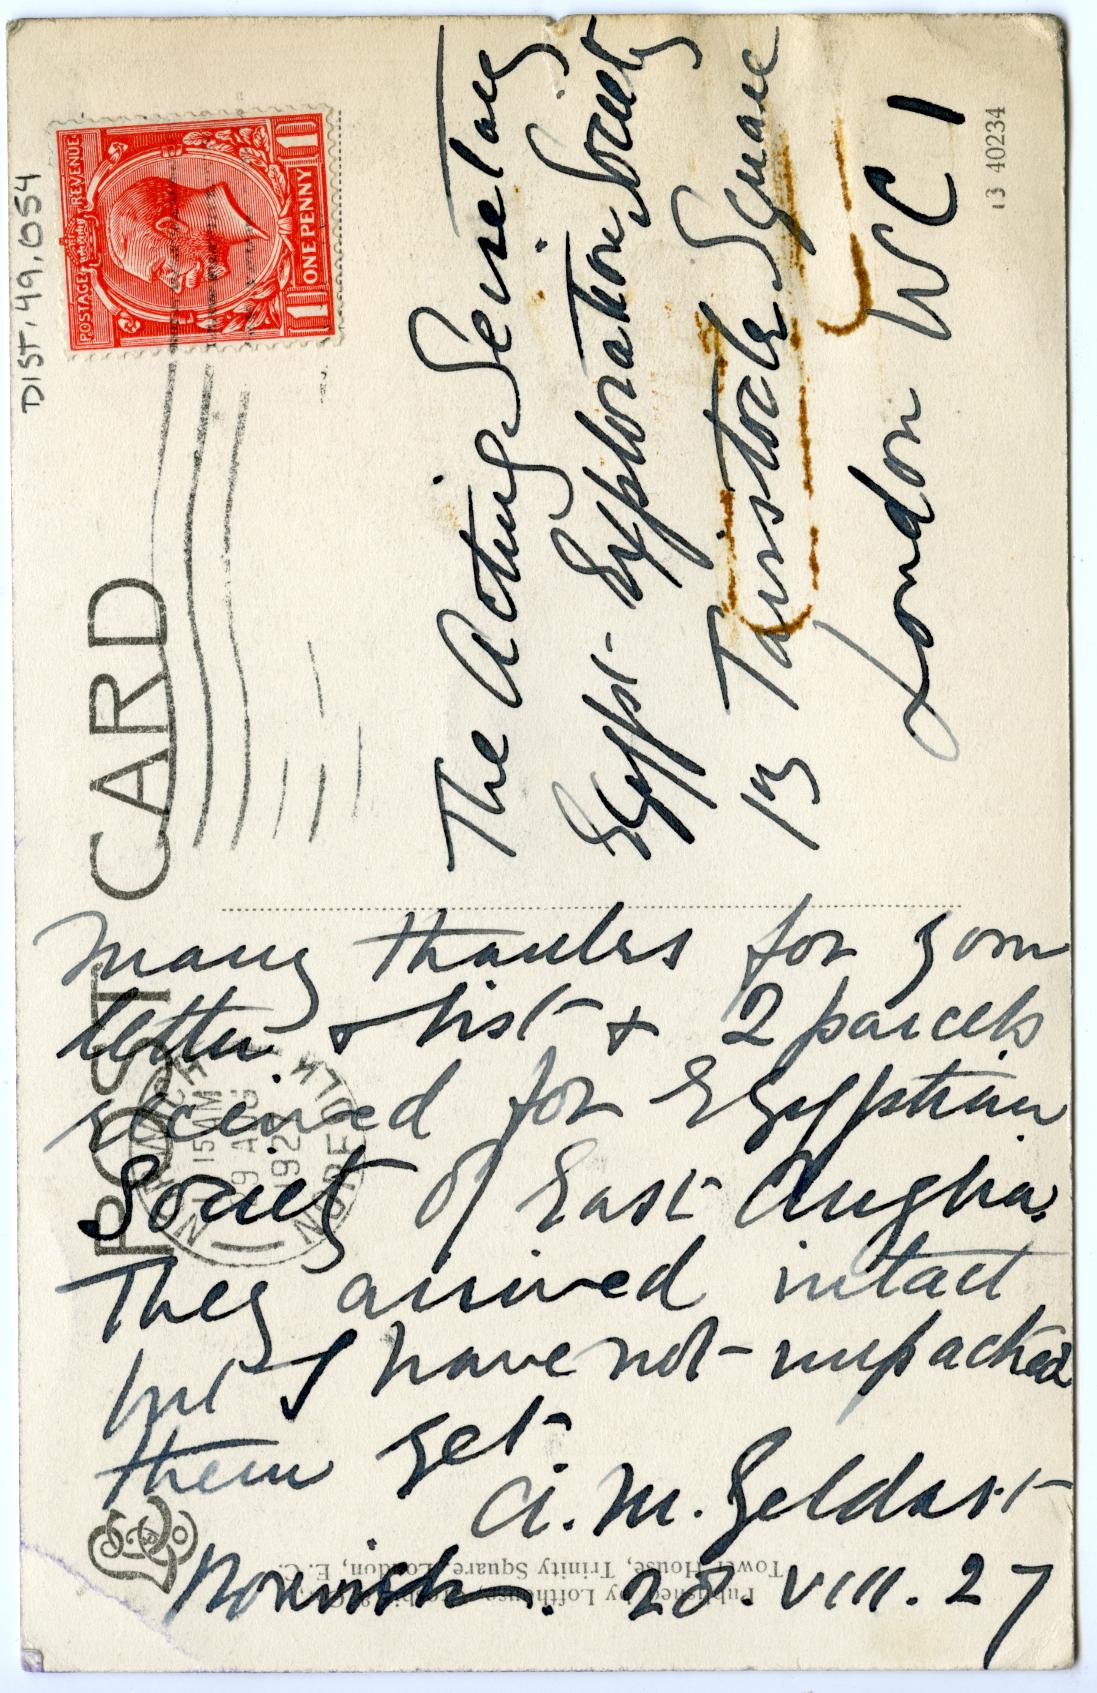 DIST. 49.054
POST CARD
POSTAGE REVENUE
1 ONE PENNY 1
NORWICH
15 AM
9 AUG
192
NORFOLK
The Acting Secretary
Egypt Exploration Society
13 Tavistock Square
London WC 1
13 40234
Many thanks for your
letter & list & 2 parcels
received for Egyptian
Society of East Anglia.
They arrived intact
but I have not unpacked
them yet
A. M. Geldart
Norwich. 28. VIII. 27
Published by Lofthouse,
Tower House, Trinity Square, London, E.C.